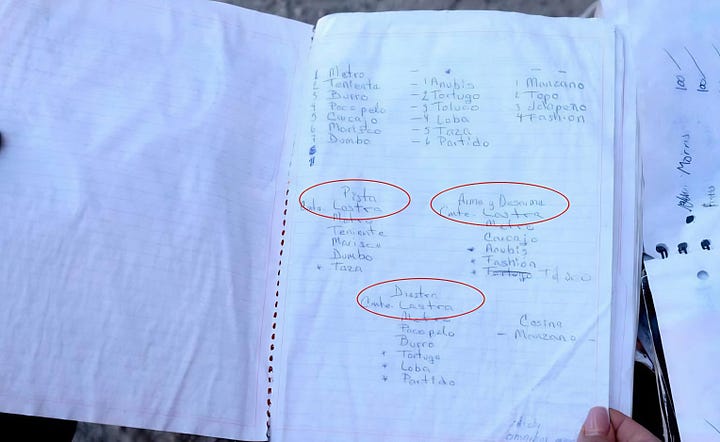 1 Metro
2 Teniente
3 Burro
4 Pocopelo
5 Carcajo
6 Marisco
7 Dumbo
- 1 Anubis
- 2 Tortugo
- 3 Toluco
- 4 Loba
- 5 Taza
- 6 Partido
1 Manzano
2 Topo
3 Jalapeño
4 Fashion
Pista
Cmte. Lastra
Metro
Teniente
Marisco
Dumbo
* Taza
Arme y Desarme
Cmte. Lastra
Metro
Carcajo
* Anubis
* Fashion
Diestra
Cmte. Lastra
Metro
Pocopelo
Burro
* Tortugo
* Loba
* Partido
Cosina
- Manzano -
100/
100/
Morris